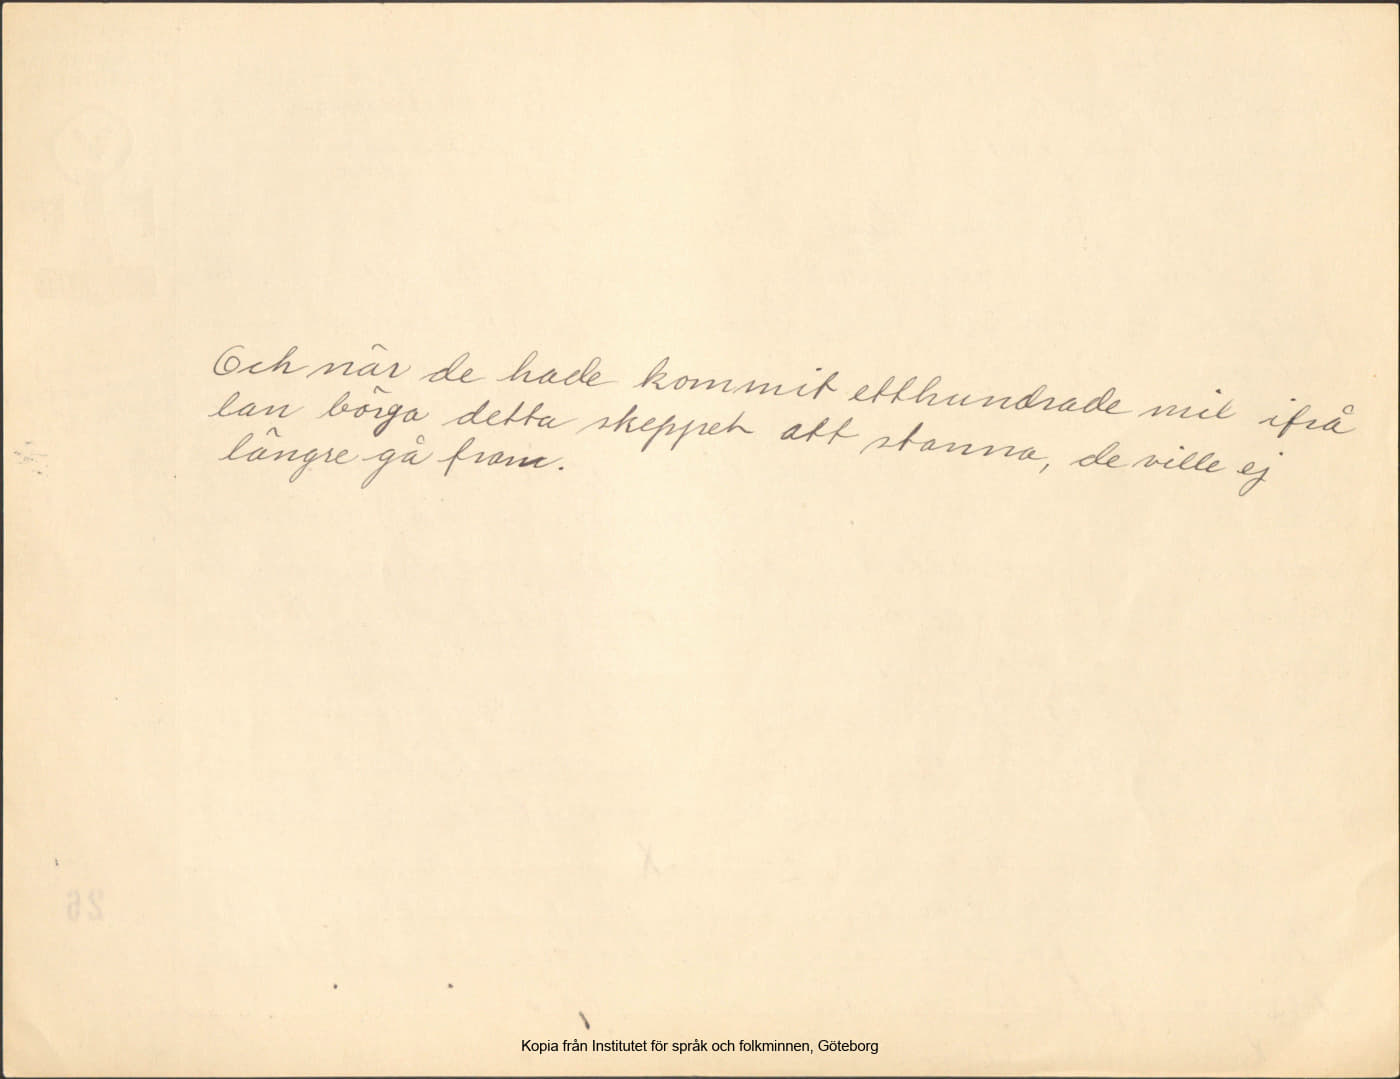 Och när de hade kommit etthundrade mil ifrå
lan börga detta skeppet att stanna, de ville ej
längre gå fram.
Kopia från Institutet för språk och folkminnen, Göteborg